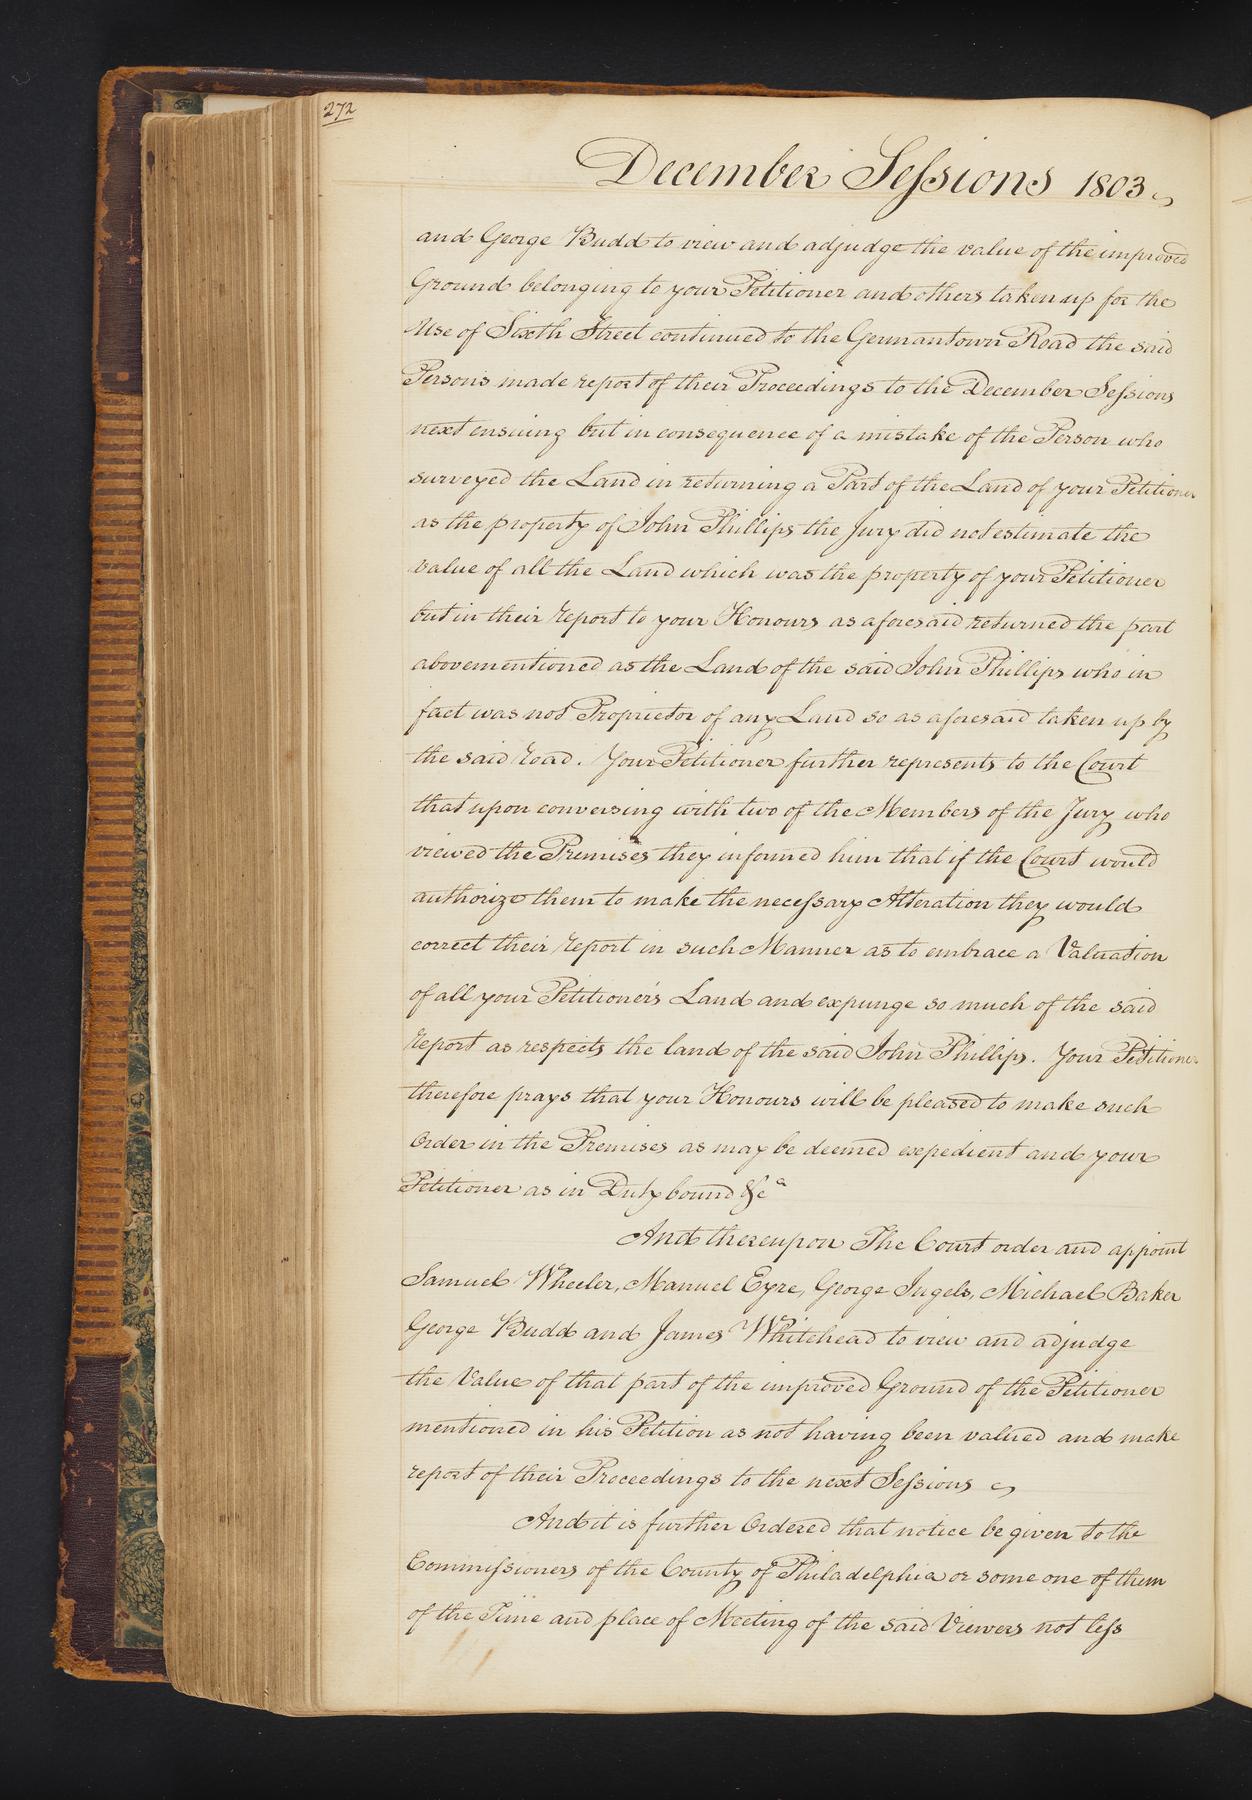 272
December Sessions 1803
and George Budd to view and adjudge the value of the improved
Ground belonging to your Petitioner and others taken up for the
Use of Sixth Street continued to the Germantown Road the said
Persons made report of their Proceedings to the December Sessions
next ensuing but in consequence of a mistake of the Person who
surveyed the Land in returning a Part of the Land of your Petitioner
as the property of John Phillips the Jury did not estimate the
value of all the Land which was the property of your Petitioner
but in their report to your Honours as aforesaid returned the part
abovementioned as the Land of the said John Phillips who in
fact was not Proprietor of any Land so as aforesaid taken up by
the said road. Your Petitioner further represents to the Court
that upon conversing with two of the Members of the Jury who
viewed the Premises they informed him that if the Court would
authorize them to make the necessary Alteration they would
correct their report in such Manner as to embrace a Valuation
of all your Petitioner's Land and expunge so much of the said
report as respects the land of the said John Phillips. Your Petitioner
therefore prays that your Honours will be pleased to make such
Order in the Premises as may be deemed expedient and your
Petitioner as in Duty bound &ca
And thereupon The Court order and appoint
Samuel Wheeler, Manuel Eyre, George Ingels, Michael Baker
George Budd and James Whitehead to view and adjudge
the Value of that part of the improved Ground of the Petitioner
mentioned in his Petition as not having been valued and make
report of their Proceedings to the next Sessions
And it is further Ordered that notice be given to the
Commissioners of the County of Philadelphia or some one of them
of the Time and place of Meeting of the said Viewers not less